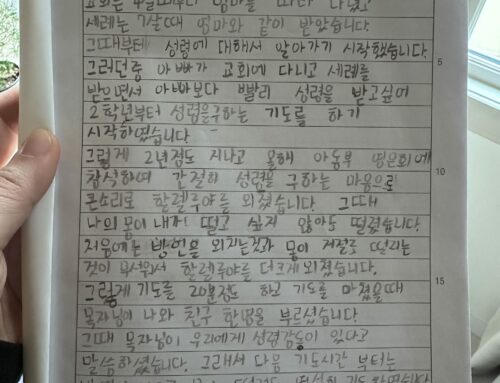 교회는 4살때부터 엄마를 따라 다녔고
세례는 7살때 엄마와 같이 받았습니다.
그때부터 성령에 대해서 알아가기 시작했습니다.
5
그러던중 아빠가 교회에 다니고 세례를
받으면서 아빠보다 빨리 성령을 받고싶어
2학년부터 성령을구하는 기도를 하기
시작하였습니다.
그렇게 2년정도 지나고 올해 아동부 영은회에
10
참석하여 간절히 성령을 구하는 마음으로
큰소리로 할렐루야를 외쳤습니다. 그때
나의 몸이 내가 떨고 싶지 않아도 떨렸습니다.
처음에는 방언을 외치는것과 몸이 저절로 떨리는
것이 무서워서 할렐루야를 더크게 외쳤습니다.
15
그렇게 기도를 20분정도 하고 기도를 마쳤을때
목자님이 나와 친구 한명을 부르셨습니다.
그때 목자님이 우리에게 성령감동이 있다고
말씀하셨습니다. 그래서 다음 기도시간 부터는